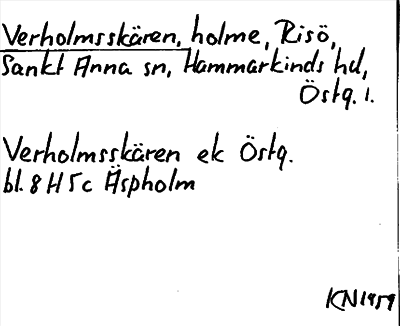 Verholmsskären, holme, Risö,
Sankt Anna sn, Hammarkinds hd,
Östg. l.
Verholmsskären ek Östg.
bl. 8 H 5 c Äspholm
KN 1959